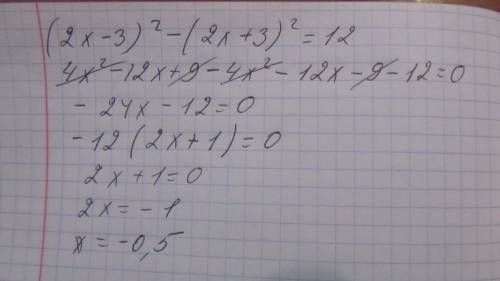 (2x-3)²-(2x+3)²=12
4x²-12x+9-4x²-12x-9-12=0
-24x-12=0
-12(2x+1)=0
2x+1=0
2x=-1
x=-0,5